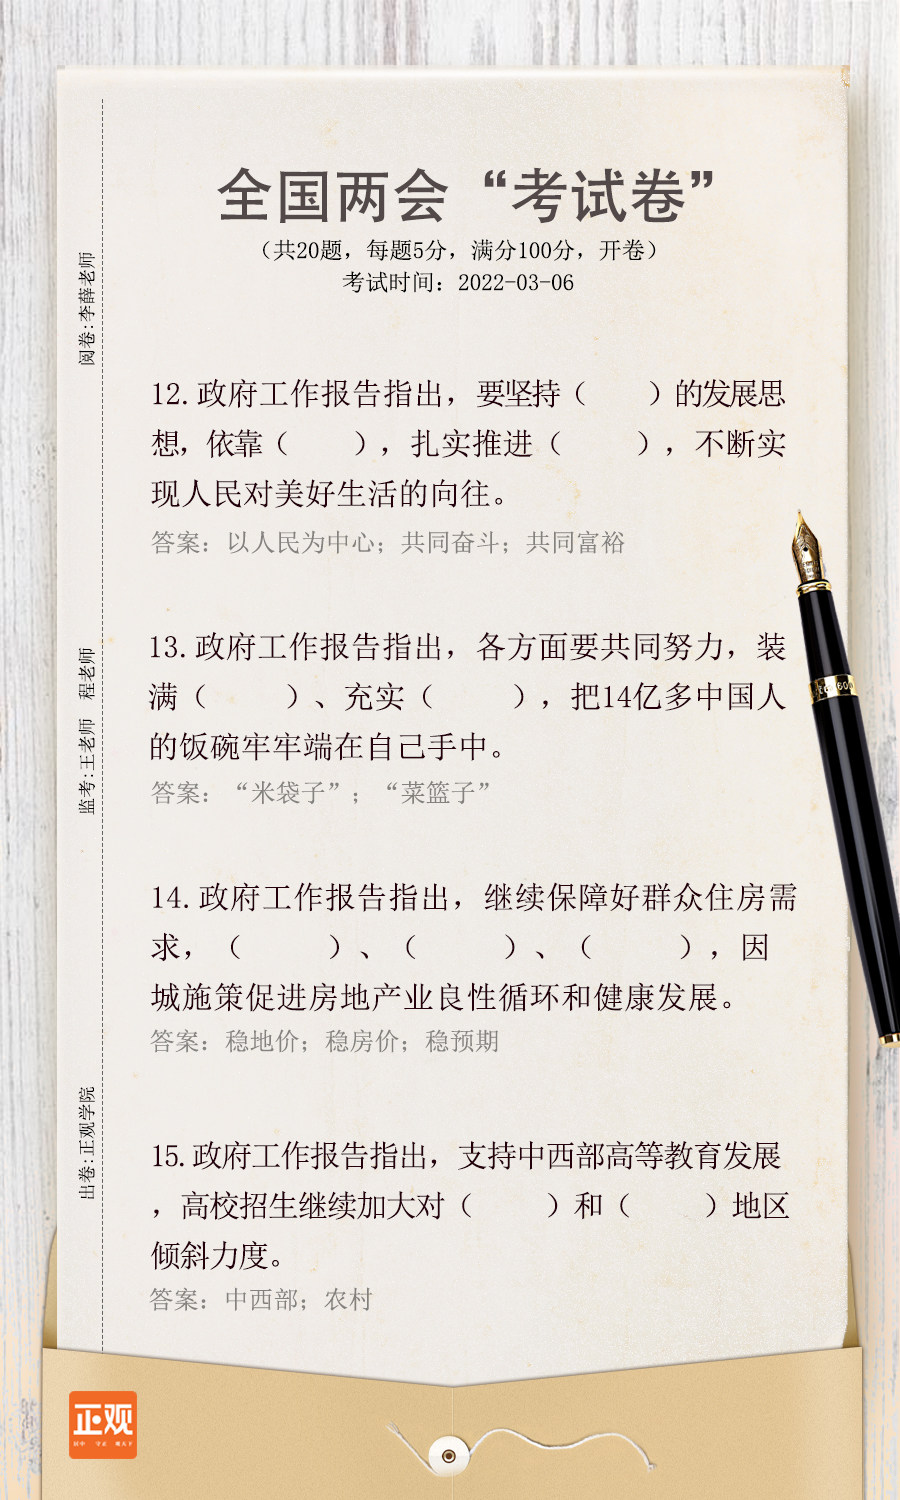 全国两会“考试卷”
（共20题，每题5分，满分100分，开卷）
考试时间：2022-03-06
阅卷:李薛老师
12.政府工作报告指出，要坚持（　　）的发展思
想，依靠（　　），扎实推进（　　），不断实
现人民对美好生活的向往。
答案：以人民为中心；共同奋斗；共同富裕
监考:王老师　程老师
13.政府工作报告指出，各方面要共同努力，装
满（　　）、充实（　　），把14亿多中国人
的饭碗牢牢端在自己手中。
答案：“米袋子”；“菜篮子”
14.政府工作报告指出，继续保障好群众住房需
求，（　　）、（　　）、（　　），因
城施策促进房地产业良性循环和健康发展。
答案：稳地价；稳房价；稳预期
出卷:正观学院
15.政府工作报告指出，支持中西部高等教育发展
，高校招生继续加大对（　　）和（　　）地区
倾斜力度。
答案：中西部；农村
正观